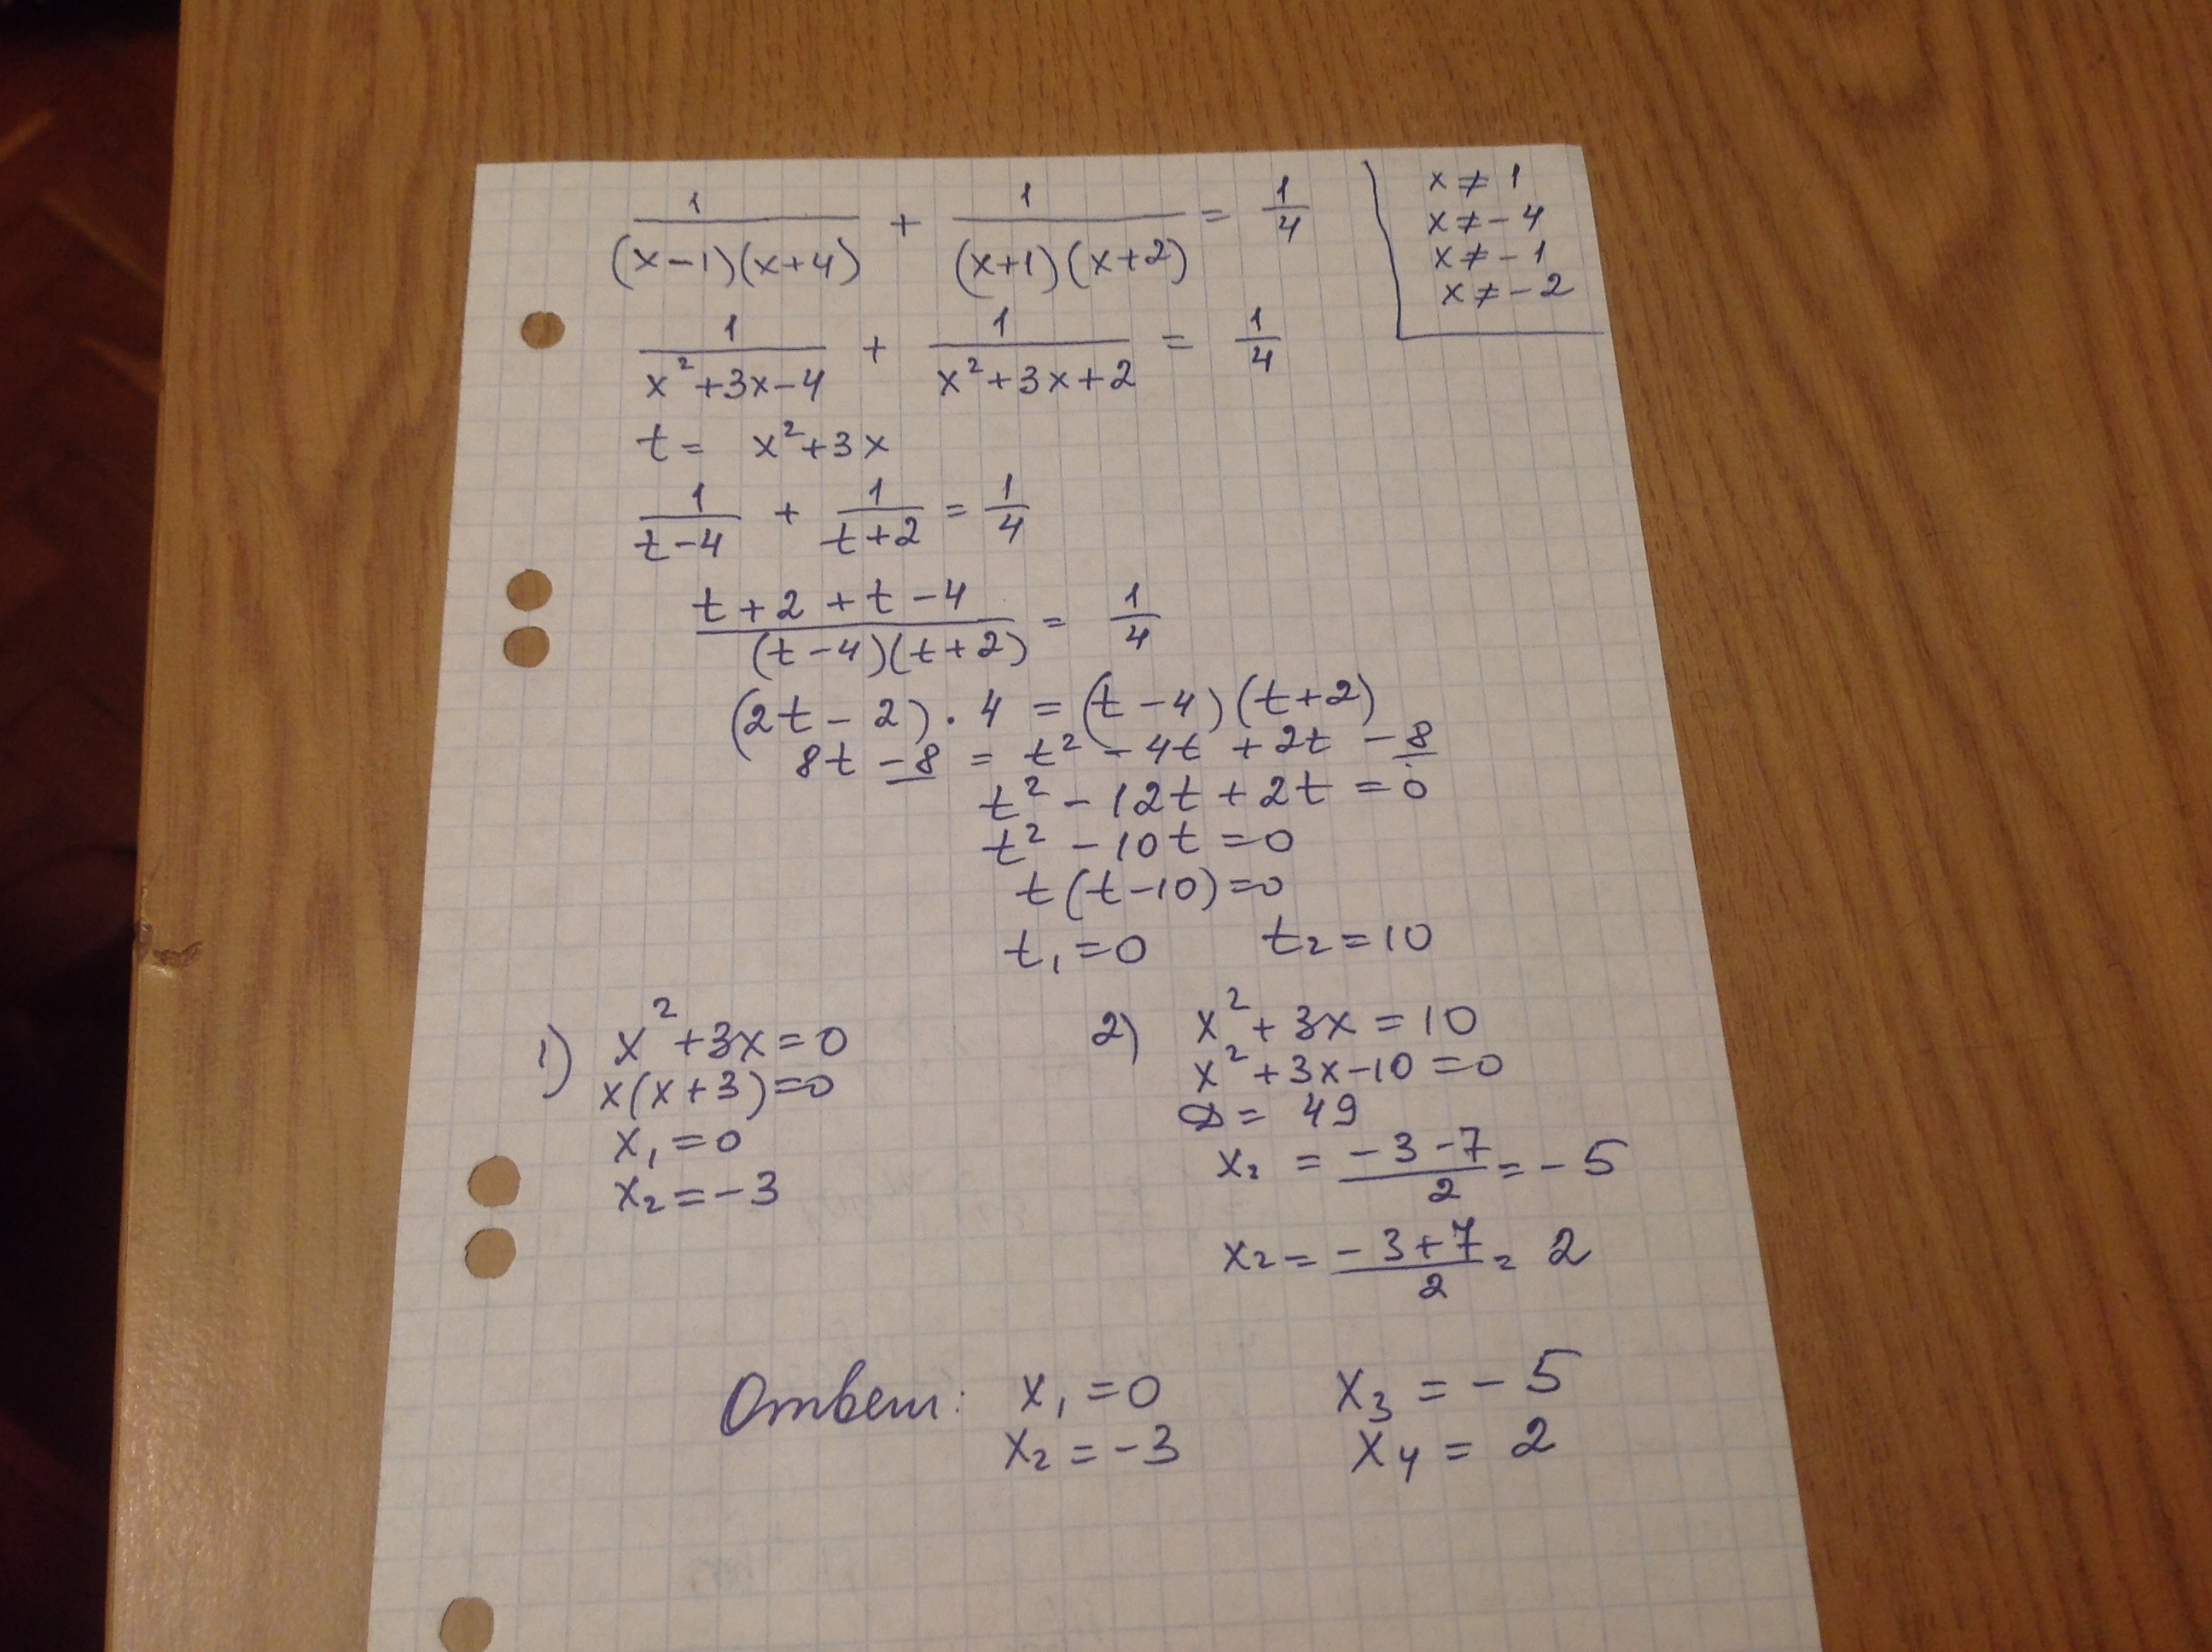 1/((x-1)(x+4)) + 1/((x+1)(x+2)) = 1/4
x ≠ 1
x ≠ -4
x ≠ -1
x ≠ -2
1/(x²+3x-4) + 1/(x²+3x+2) = 1/4
t = x²+3x
1/(t-4) + 1/(t+2) = 1/4
(t+2+t-4)/((t-4)(t+2)) = 1/4
(2t-2)·4 = (t-4)(t+2)
8t-8 = t²-4t+2t-8
t²-12t+2t=0
t²-10t=0
t(t-10)=0
t₁=0 t₂=10
1) x²+3x=0
x(x+3)=0
x₁=0
x₂=-3
2) x²+3x=10
x²+3x-10=0
D=49
x₂ = (-3-7)/2 = -5
x₂ = (-3+7)/2 = 2
Ответ: x₁=0 x₃=-5
x₂=-3 x₄=2